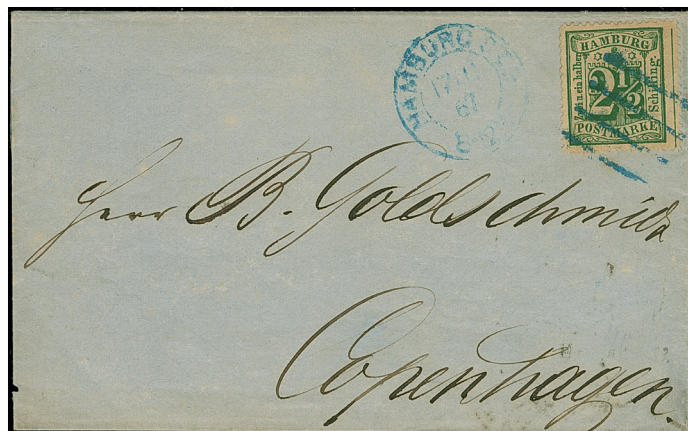 HAMBURG
17
67
HAMBURG
Zwei u ein halber
2 1/2
Schilling
POSTMARKE
Herr B. Goldschmidt
Copenhagen.